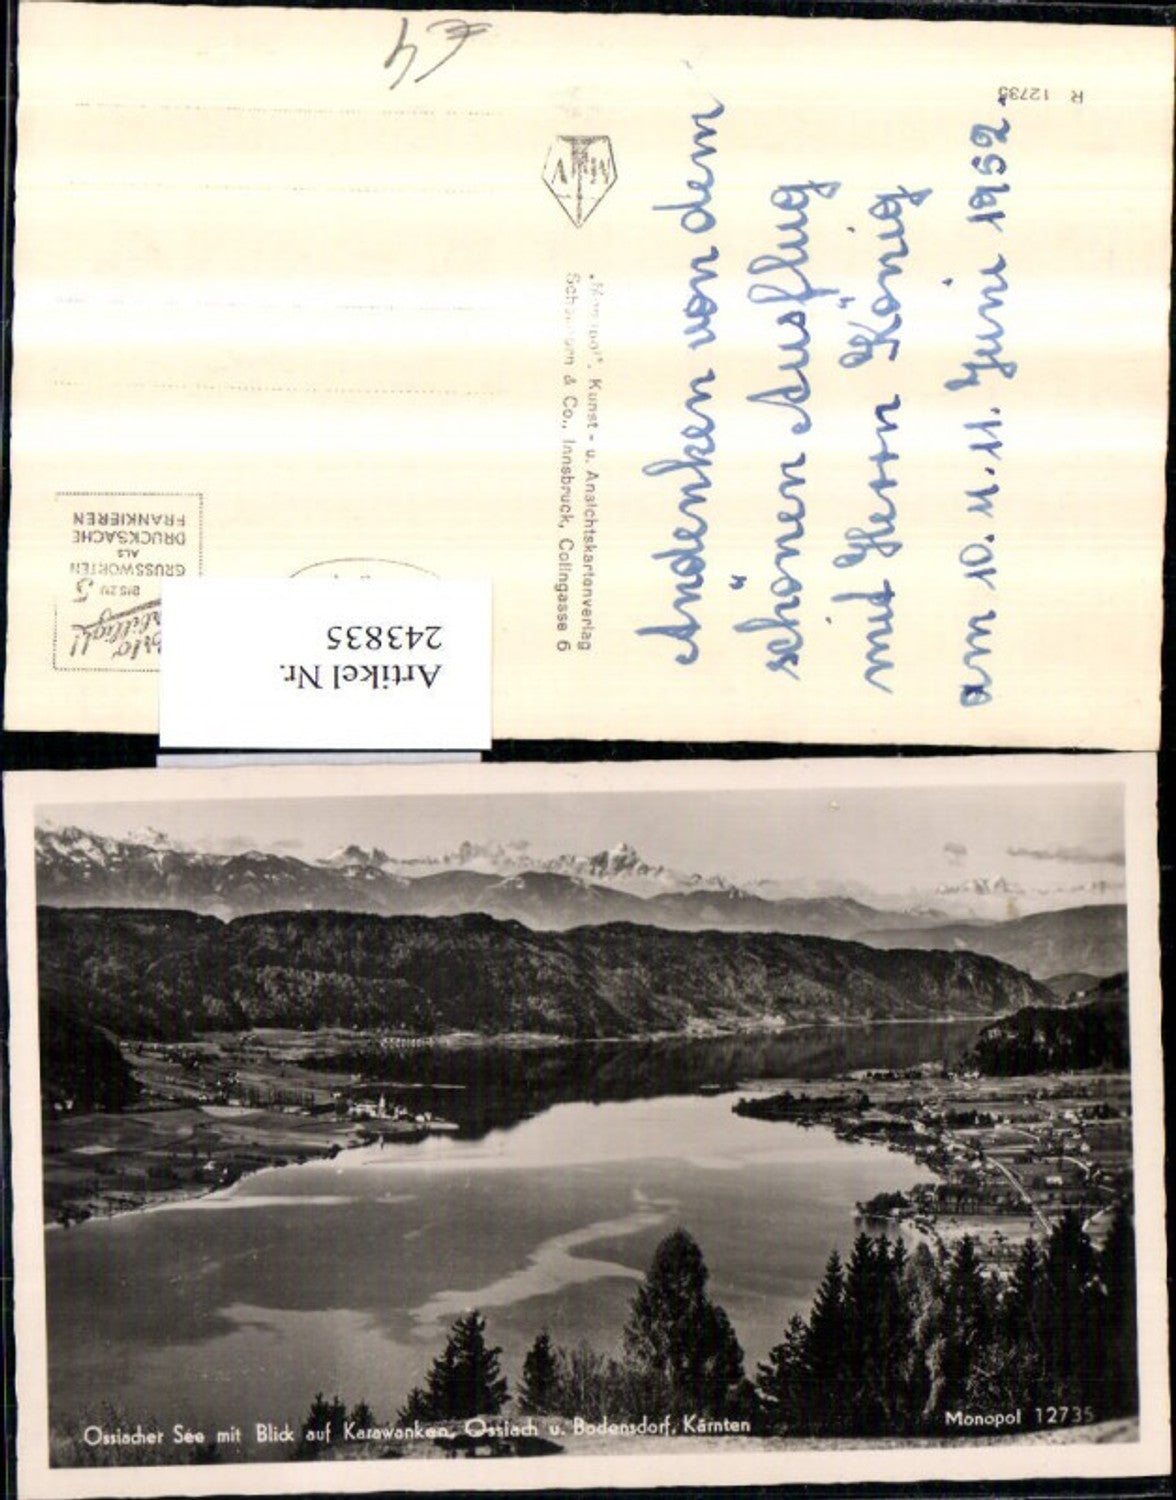 €4
R 12735
Andenken von dem
schönen Ausflug
mit Herrn König
am 10. u. 11. Juni 1952.
Kunst- u. Ansichtskartenverlag
& Co., Innsbruck, Colingasse 6
BIS ZU 5
GRUSSWORTEN
ALS
DRUCKSACHE
FRANKIEREN
Artikel Nr.
243835
Ossiacher See mit Blick auf Karawanken, Ossiach u. Bodensdorf, Kärnten
Monopol 12735